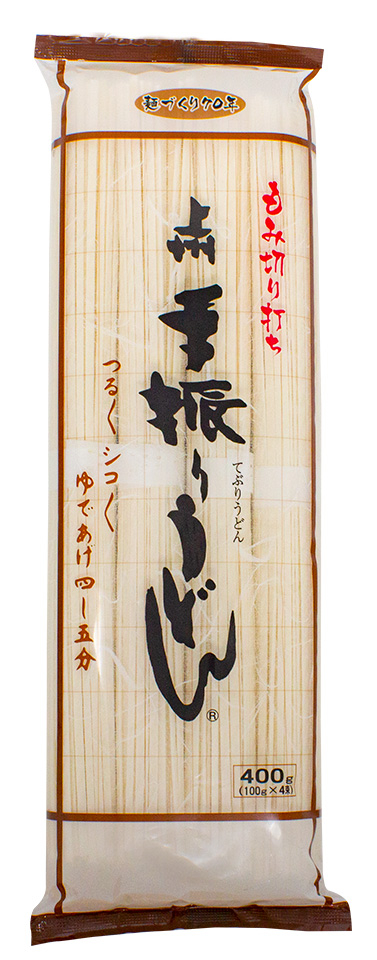 麺づくり70年
もみ切り打ち
上州
手振りうどん
®
てぶりうどん
つる〱シコ〱
ゆであげ四〜五分
400g
(100g×4束)